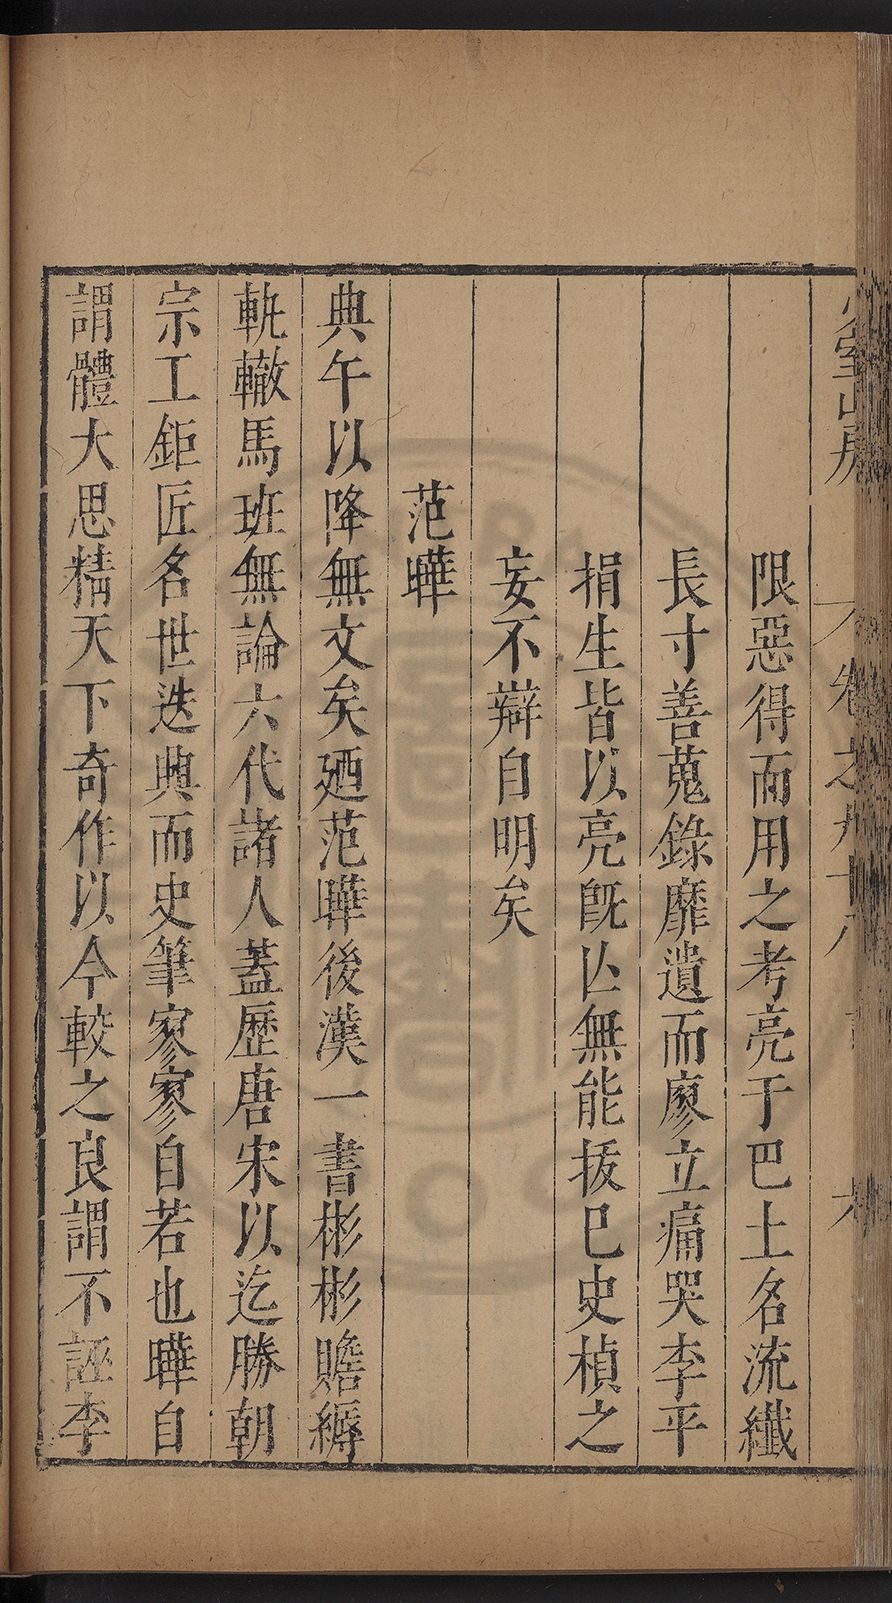 少室山房 卷之九十八
限惡得而用之考亮于巴土名流纖
長寸善蒐錄靡遺而廖立痛哭李平
捐生皆以亮既亾無能拔巳史楨之
妄不辯自明矣
范曄
典午以降無文矣廼范曄後漢一書彬彬贍縟
軌轍馬班無論六代諸人蓋歷唐宋以迄勝朝
宗工鉅匠名世迭興而史筆寥寥自若也曄自
謂體大思精天下奇作以今較之良謂不誣李